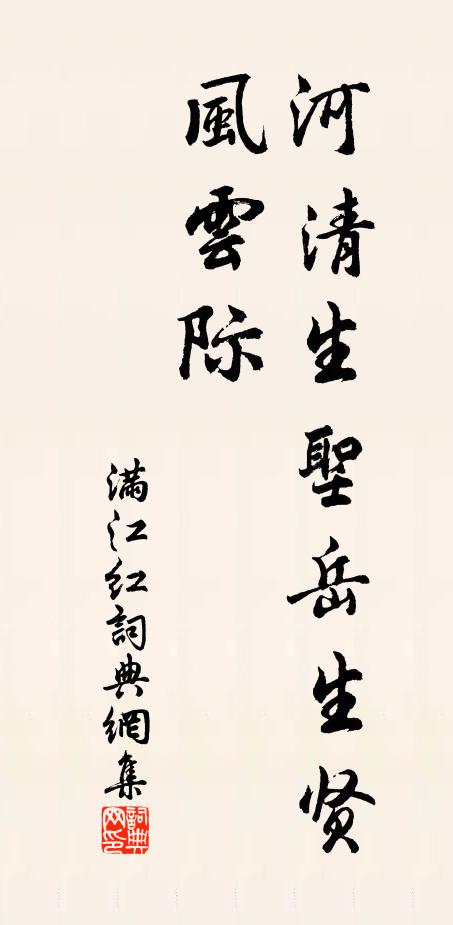 河清生聖岳生贤
風雲际
满江红詞典網集
詞典
网印